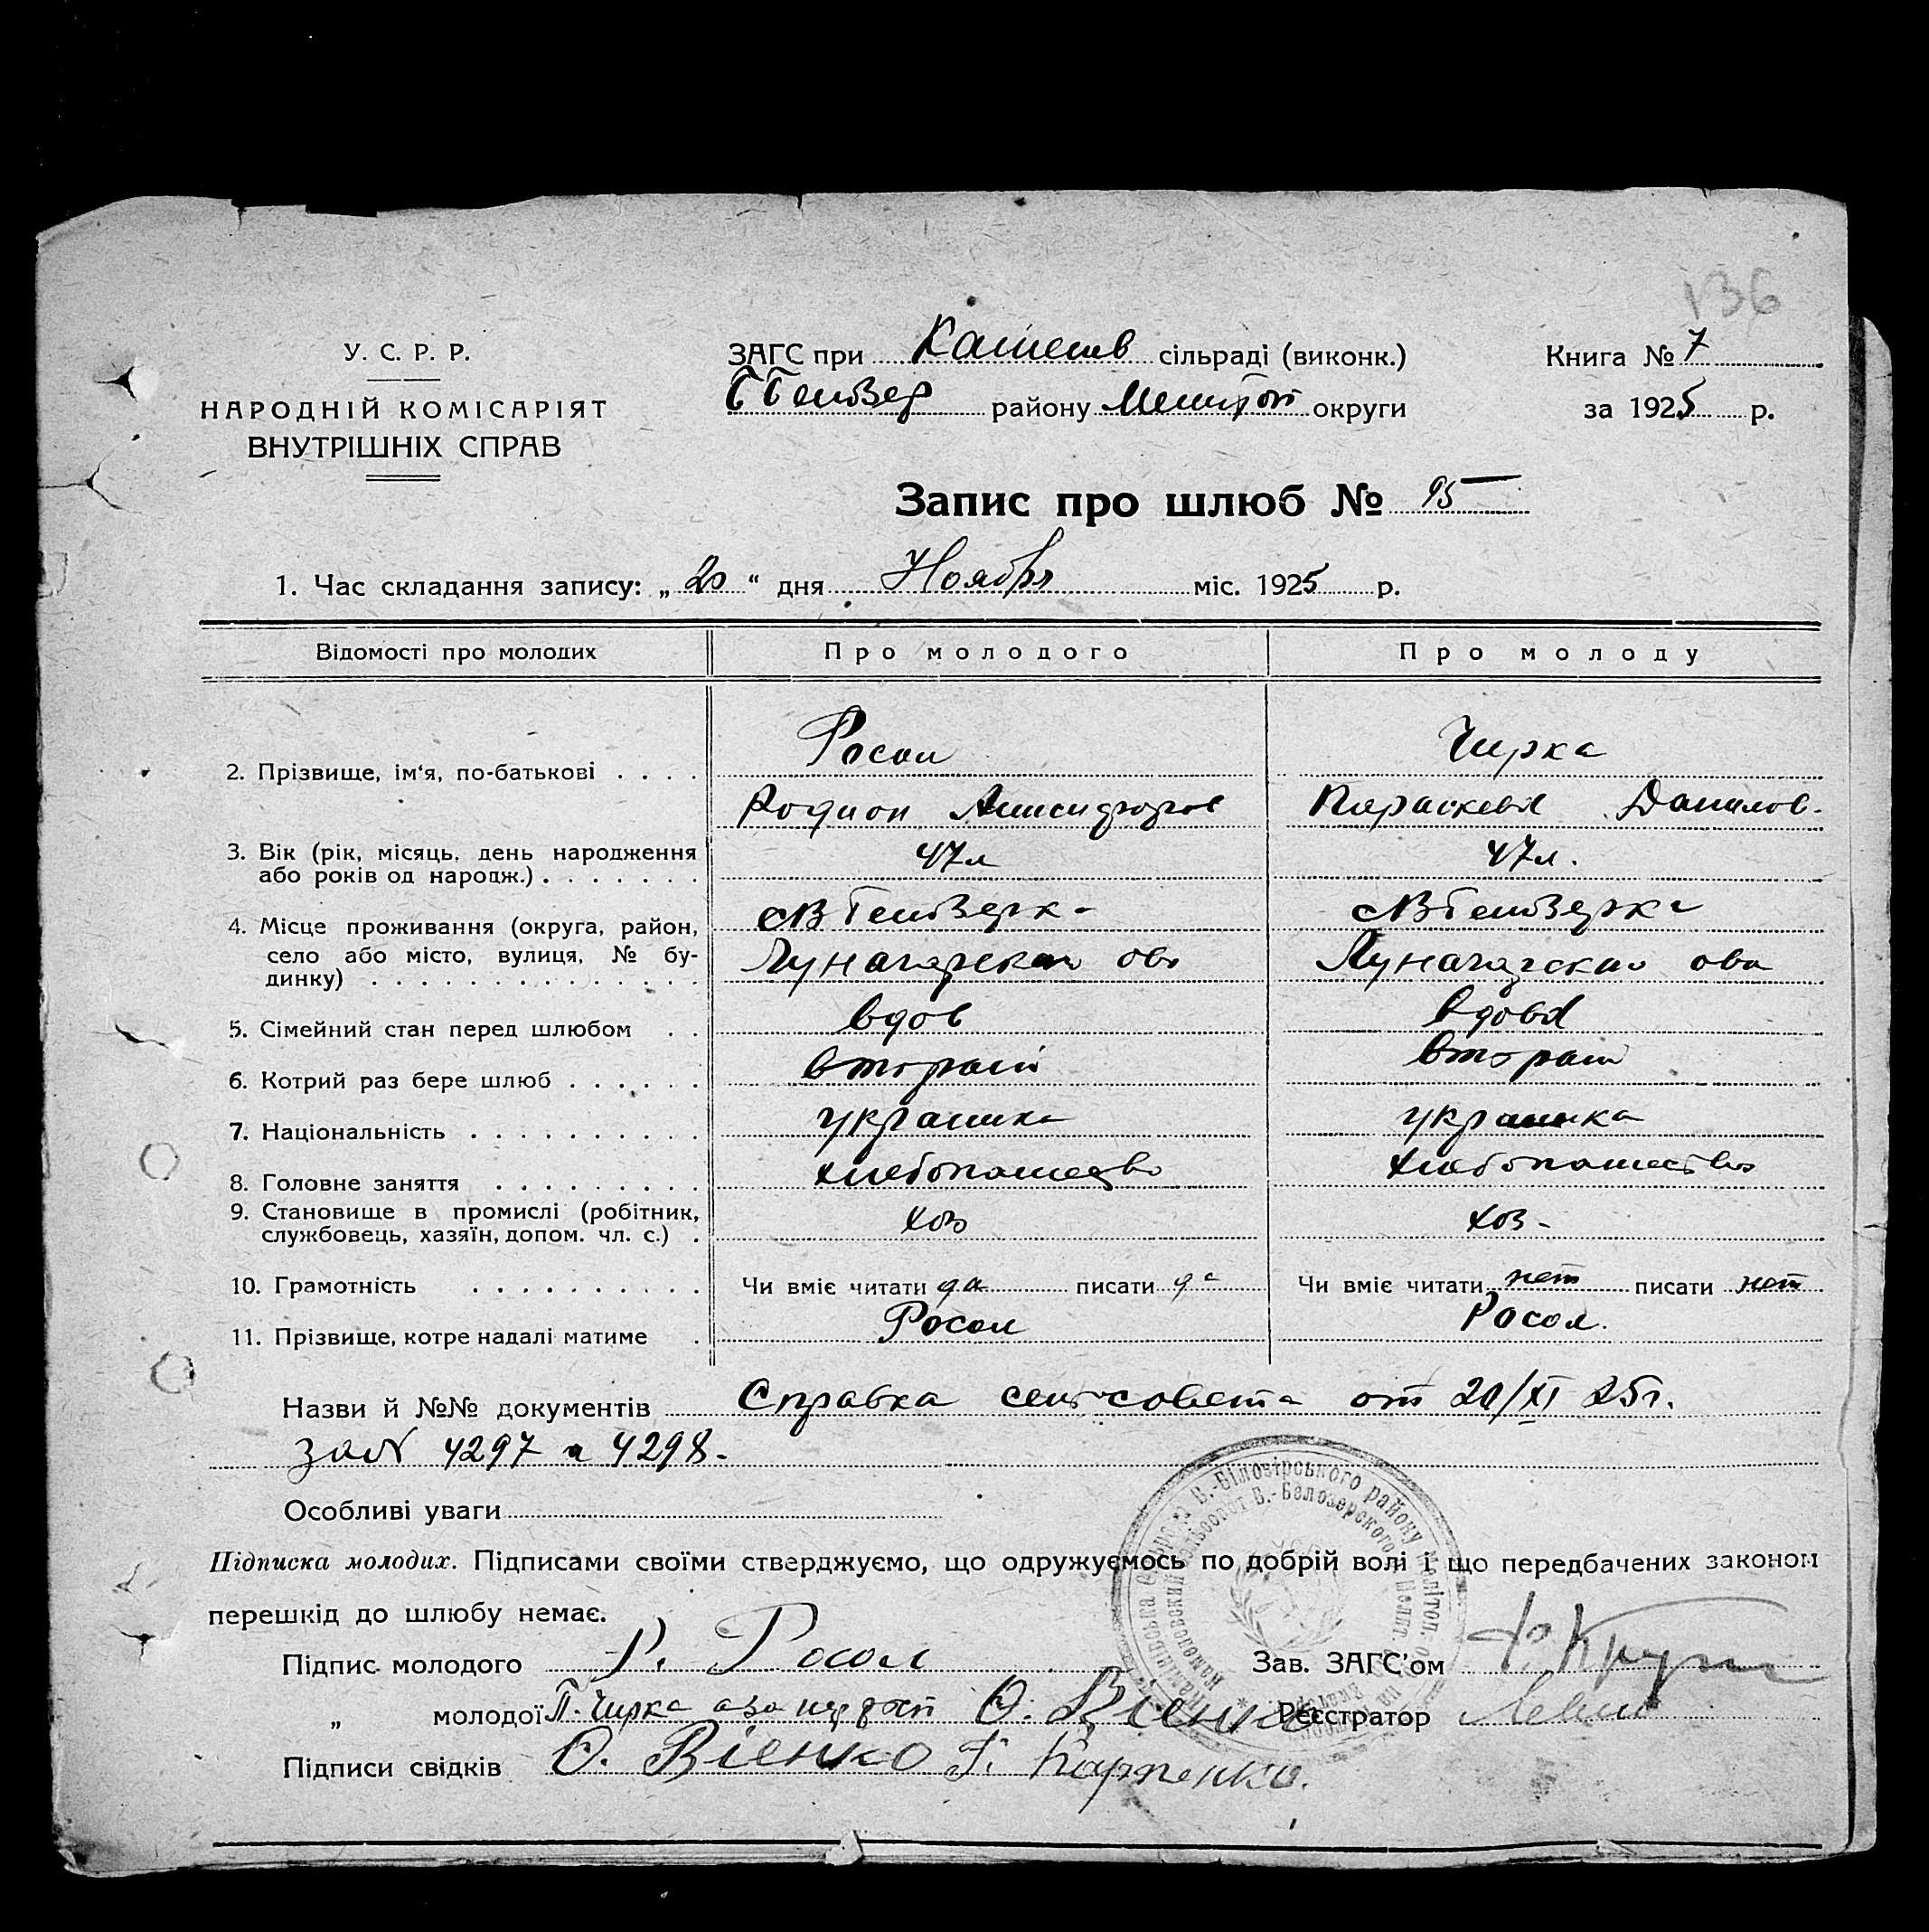 136
У. С. Р. Р.
НАРОДНІЙ КОМІСАРІЯТ
ВНУТРІШНІХ СПРАВ
ЗАГС при сільраді (виконк.)
району Мелитоп округи
Книга № 7
за 1925 р.
Запис про шлюб № 95
1. Час складання запису: „ 20 “ дня Ноября міс. 1925 р.
Відомості про молодих Про молодого Про молоду
Росол Чирка
2. Прізвище, ім‘я, по-батькові . . . .
Родион Параскева Данилов.
3. Вік (рік, місяць, день народження 47 л 47 л.
або років од народж.) . . . . . . .
4. Місце проживання (округа, район,
село або місто, вулиця, № бу-
динку) . . . . . . . . . . . . . .
5. Сімейний стан перед шлюбом . . вдов вдова
6. Котрий раз бере шлюб . . . . . . вторый второй
7. Національність . . . . . . . . . . украинка
8. Головне заняття . . . . . . . . . хлебопашество хлебопашество
9. Становище в промислі (робітник, хоз хоз-
службовець, хазяїн, допом. чл. с.) .
10. Грамотність . . . . . . . . . . Чи вміє читати да писати да Чи вміє читати нет писати нет
11. Прізвище, котре надалі матиме . Росол Росол.
Назви й №№ документів Справка сельсовета от 20/XI 25 г.
за № 4297 и 4298.
Особливі уваги
Підписка молодих. Підписами своїми стверджуємо, що одружуємось по добрій волі і що передбачених законом
перешкід до шлюбу немає.
Підпис молодого Р. Росол Зав. ЗАГС’ом
„ молодої П. Чирка а за Реєстратор
Підписи свідків Карпенко.
В.-Білозірського району Мелітоп.
В.-Белозерского